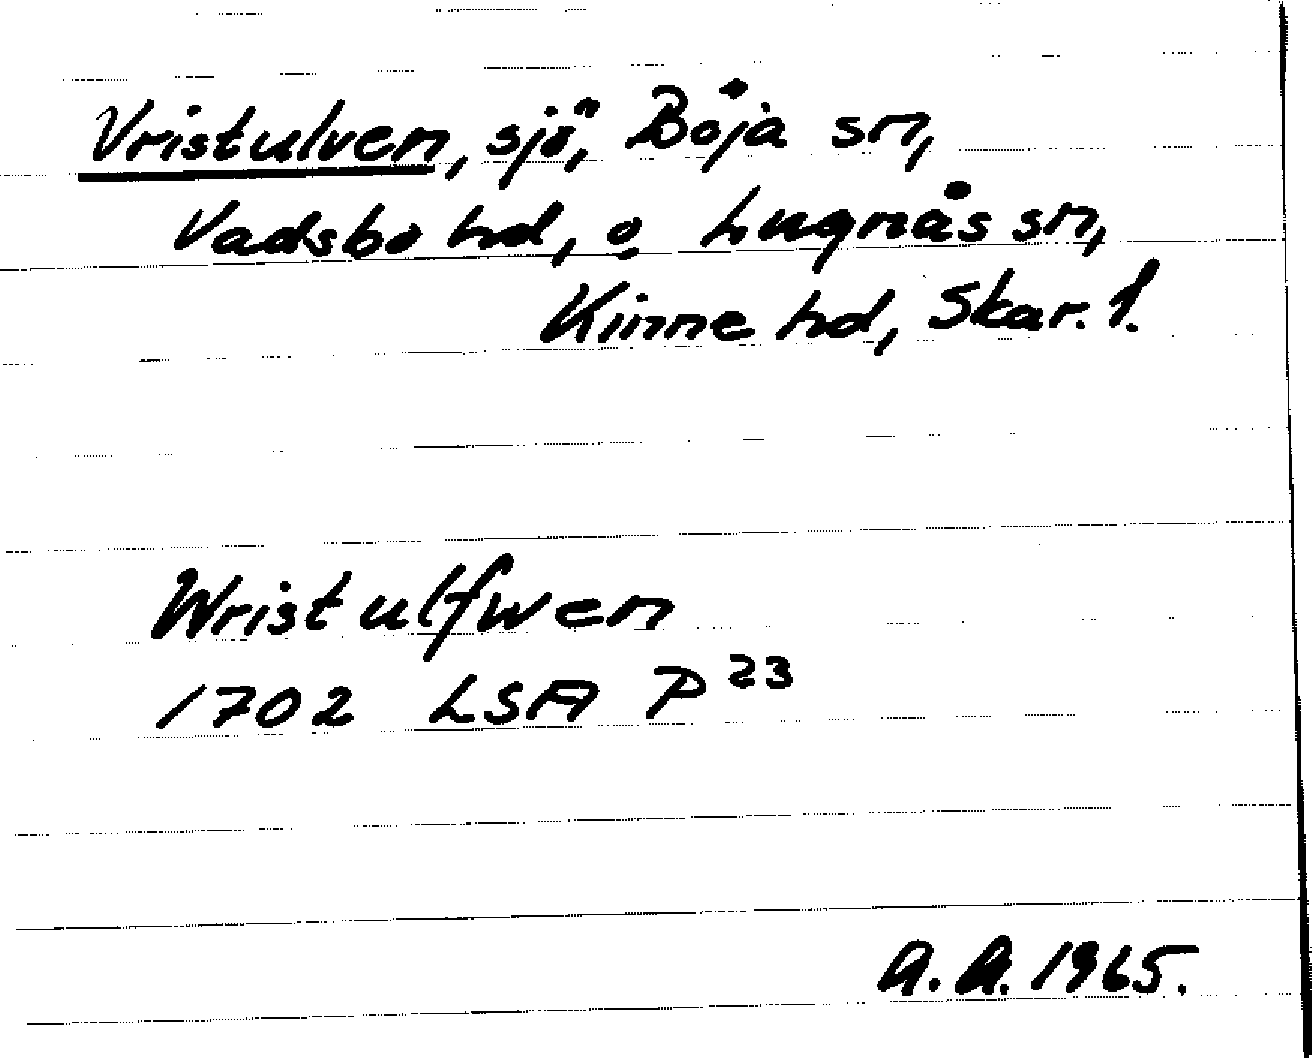 Vristulven, sjö, Böja sn,
Vadsbo hd, o. Lugnås sn,
Kinne hd, Skar. l.
Wristulfwen
1702 LSA P 23
A. A. 1965.